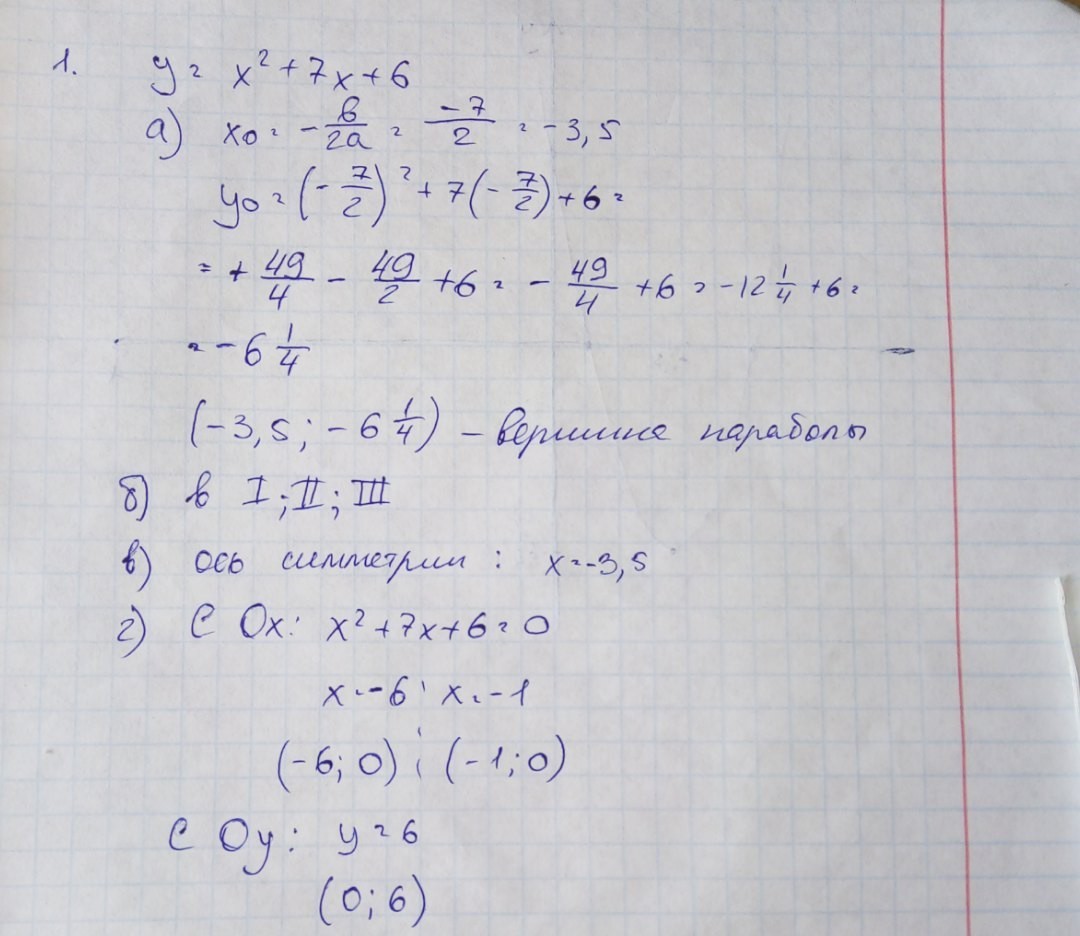 1. y = x² + 7x + 6
а) x₀ = -в/2а = -7/2 = -3,5
y₀ = (-7/2)² + 7(-7/2) + 6 =
= + 49/4 - 49/2 + 6 = - 49/4 + 6 = -12 1/4 + 6 =
= -6 1/4
(-3,5; -6 1/4) - вершина параболы
б) в I; II; III
в) ось симметрии: x = -3,5
г) С Ox: x² + 7x + 6 = 0
x = -6; x = -1
(-6; 0); (-1; 0)
С Oy: y = 6
(0; 6)